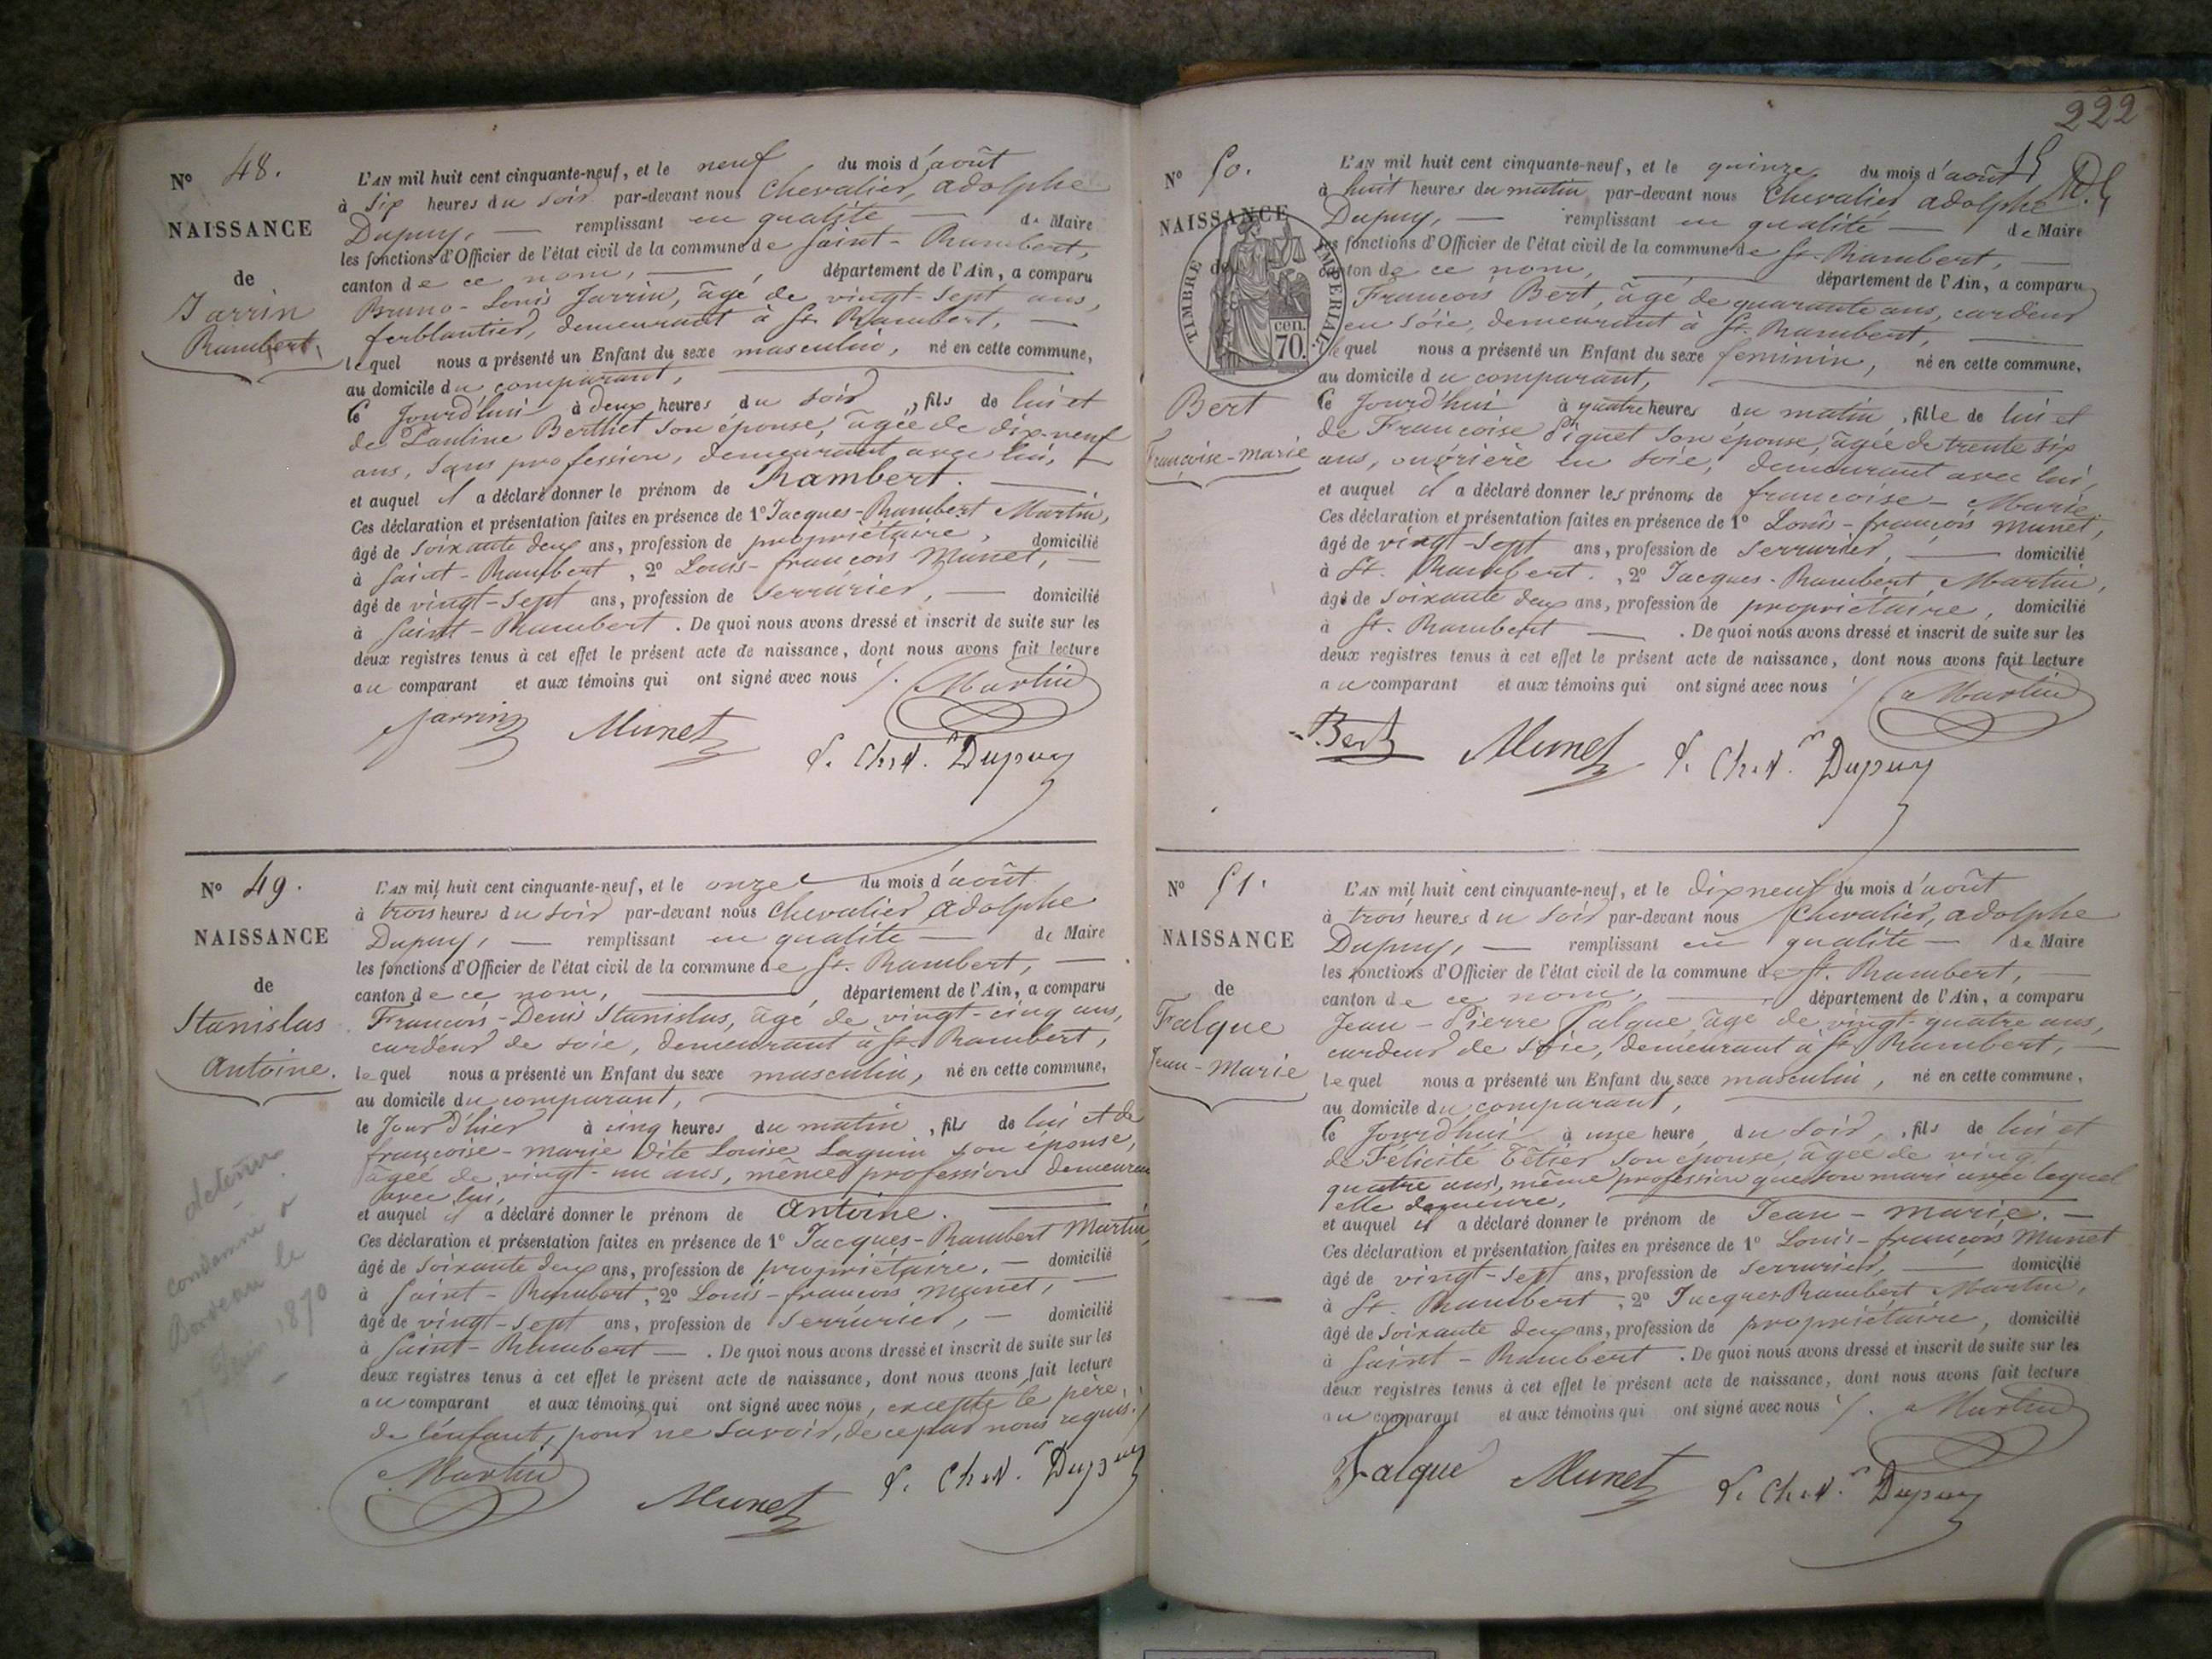 Nº 48.
NAISSANCE
de
Jarrin
Rambert.
L'AN mil huit cent cinquante-neuf, et le neuf du mois d'août
à six heures du soir par-devant nous Chevalier, adolphe
Dupuy, — remplissant en qualité — de Maire
les fonctions d'Officier de l'état civil de la commune de Saint-Rambert,
canton de ce nom, — , département de l'Ain, a comparu
Bruno-Louis Jarrin, âgé de vingt-sept ans,
ferblantier, demeurant à St. Rambert, —
lequel nous a présenté un Enfant du sexe masculin, né en cette commune,
au domicile du comparant,
ce jourd'hui à deux heures du soir, fils de lui et
de Pauline Berthet son épouse, âgée de dix-neuf
ans, sans profession, demeurant avec lui, —
et auquel il a déclaré donner le prénom de Rambert. —
Ces déclaration et présentation faites en présence de 1º Jacques-Rambert Martin,
âgé de soixante deux ans, profession de propriétaire, domicilié
à Saint-Rambert, 2º Louis-françois Munet, —
âgé de vingt-sept ans, profession de serrurier, — domicilié
à Saint-Rambert. De quoi nous avons dressé et inscrit de suite sur les
deux registres tenus à cet effet le présent acte de naissance, dont nous avons fait lecture
au comparant et aux témoins qui ont signé avec nous /.
Martin
Jarrin Munet Chev. Dupuy
Nº 49.
NAISSANCE
de
Stanislas
Antoine.
detenu
condamné a
le
1870
L'AN mil huit cent cinquante-neuf, et le onze du mois d'août
à trois heures du soir par-devant nous Chevalier, adolphe
Dupuy, — remplissant en qualité — de Maire
les fonctions d'Officier de l'état civil de la commune de St. Rambert, —
canton de ce nom, — , département de l'Ain, a comparu
François-Denis Stanislas, âgé de vingt-cinq ans,
cardeur de soie, demeurant à St. Rambert,
lequel nous a présenté un Enfant du sexe masculin, né en cette commune,
au domicile du comparant,
le jour d'hier à cinq heures du matin, fils de lui et de
françoise-marie dite Louise Laguin son épouse,
âgée de vingt-un ans, même profession demeurant
avec lui,
et auquel il a déclaré donner le prénom de antoine. —
Ces déclaration et présentation faites en présence de 1º Jacques-Rambert Martin,
âgé de soixante deux ans, profession de propriétaire, — domicilié
à Saint-Rambert, 2º Louis-françois Munet, —
âgé de vingt-sept ans, profession de serrurier, — domicilié
à Saint-Rambert — . De quoi nous avons dressé et inscrit de suite sur les
deux registres tenus à cet effet le présent acte de naissance, dont nous avons fait lecture
au comparant et aux témoins qui ont signé avec nous, excepté le père,
de l'enfant, pour ne savoir, de ce par nous requis. /
Martin Munet Chev. Dupuy
222
Nº 50.
NAISSANCE
de
TIMBRE IMPERIAL
70 cen.
Bert
Françoise-marie
L'AN mil huit cent cinquante-neuf, et le quinze du mois d'août 15
à huit heures du matin par-devant nous Chevalier adolphe
Dupuy, — remplissant en qualité — de Maire
les fonctions d'Officier de l'état civil de la commune de St. Rambert, —
canton de ce nom, — département de l'Ain, a comparu
François Bert, âgé de quarante ans, cardeur
en soie, demeurant à St. Rambert, —
lequel nous a présenté un Enfant du sexe feminin, né en cette commune,
au domicile du comparant,
ce jourd'hui à quatre heures du matin, fille de lui et
de Françoise Piquet son épouse, âgée de trente six
ans, ouvrière en soie, demeurant avec lui,
et auquel il a déclaré donner les prénoms de francoise-Marie.
Ces déclaration et présentation faites en présence de 1º Louis-françois munet,
âgé de vingt-sept ans, profession de serrurier, — domicilié
à St. Rambert, 2º Jacques-Rambert Martin,
âgé de soixante deux ans, profession de propriétaire, domicilié
à St. Rambert — . De quoi nous avons dressé et inscrit de suite sur les
deux registres tenus à cet effet le présent acte de naissance, dont nous avons fait lecture
au comparant et aux témoins qui ont signé avec nous /
Martin
Bert Munet Chev. Dupuy
Nº 51.
NAISSANCE
de
Falque
Jean-Marie
L'AN mil huit cent cinquante-neuf, et le dix neuf du mois d'août
à trois heures du soir par-devant nous Chevalier, adolphe
Dupuy, — remplissant en qualité — de Maire
les fonctions d'Officier de l'état civil de la commune de St. Rambert, —
canton de ce nom, — département de l'Ain, a comparu
Jean-Pierre Falque âgé de vingt-quatre ans,
cardeur de soie, demeurant à St. Rambert, —
lequel nous a présenté un Enfant du sexe masculin, né en cette commune,
au domicile du comparant,
ce jourd'hui à une heure du soir, fils de lui et
de Félicité Tétier son épouse, âgée de vingt
quatre ans, même profession que son mari avec lequel
elle demeure,
et auquel il a déclaré donner le prénom de Jean-marie. —
Ces déclaration et présentation faites en présence de 1º Louis-françois Munet
âgé de vingt-sept ans, profession de serrurier, — domicilié
à St. Rambert, 2º Jacques Rambert Martin,
âgé de soixante deux ans, profession de propriétaire, domicilié
à Saint-Rambert. De quoi nous avons dressé et inscrit de suite sur les
deux registres tenus à cet effet le présent acte de naissance, dont nous avons fait lecture
au comparant et aux témoins qui ont signé avec nous /. Martin
Falque Munet Chev. Dupuy